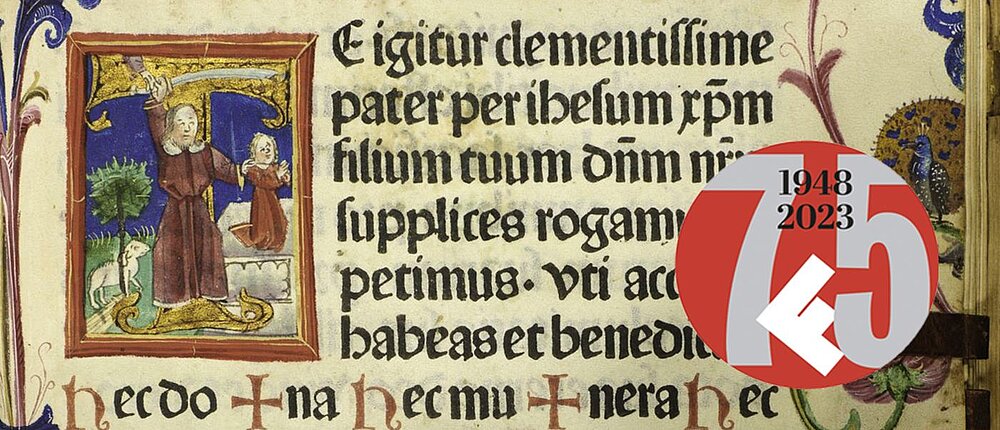 TE igitur clementiſſime
pater per iheſum xp̄m
filium tuum dn̄m
ſupplices rogamu
petimus. vti acc
habeas et benedic
hec do + na hec mu + nera hec
75
1948
2023